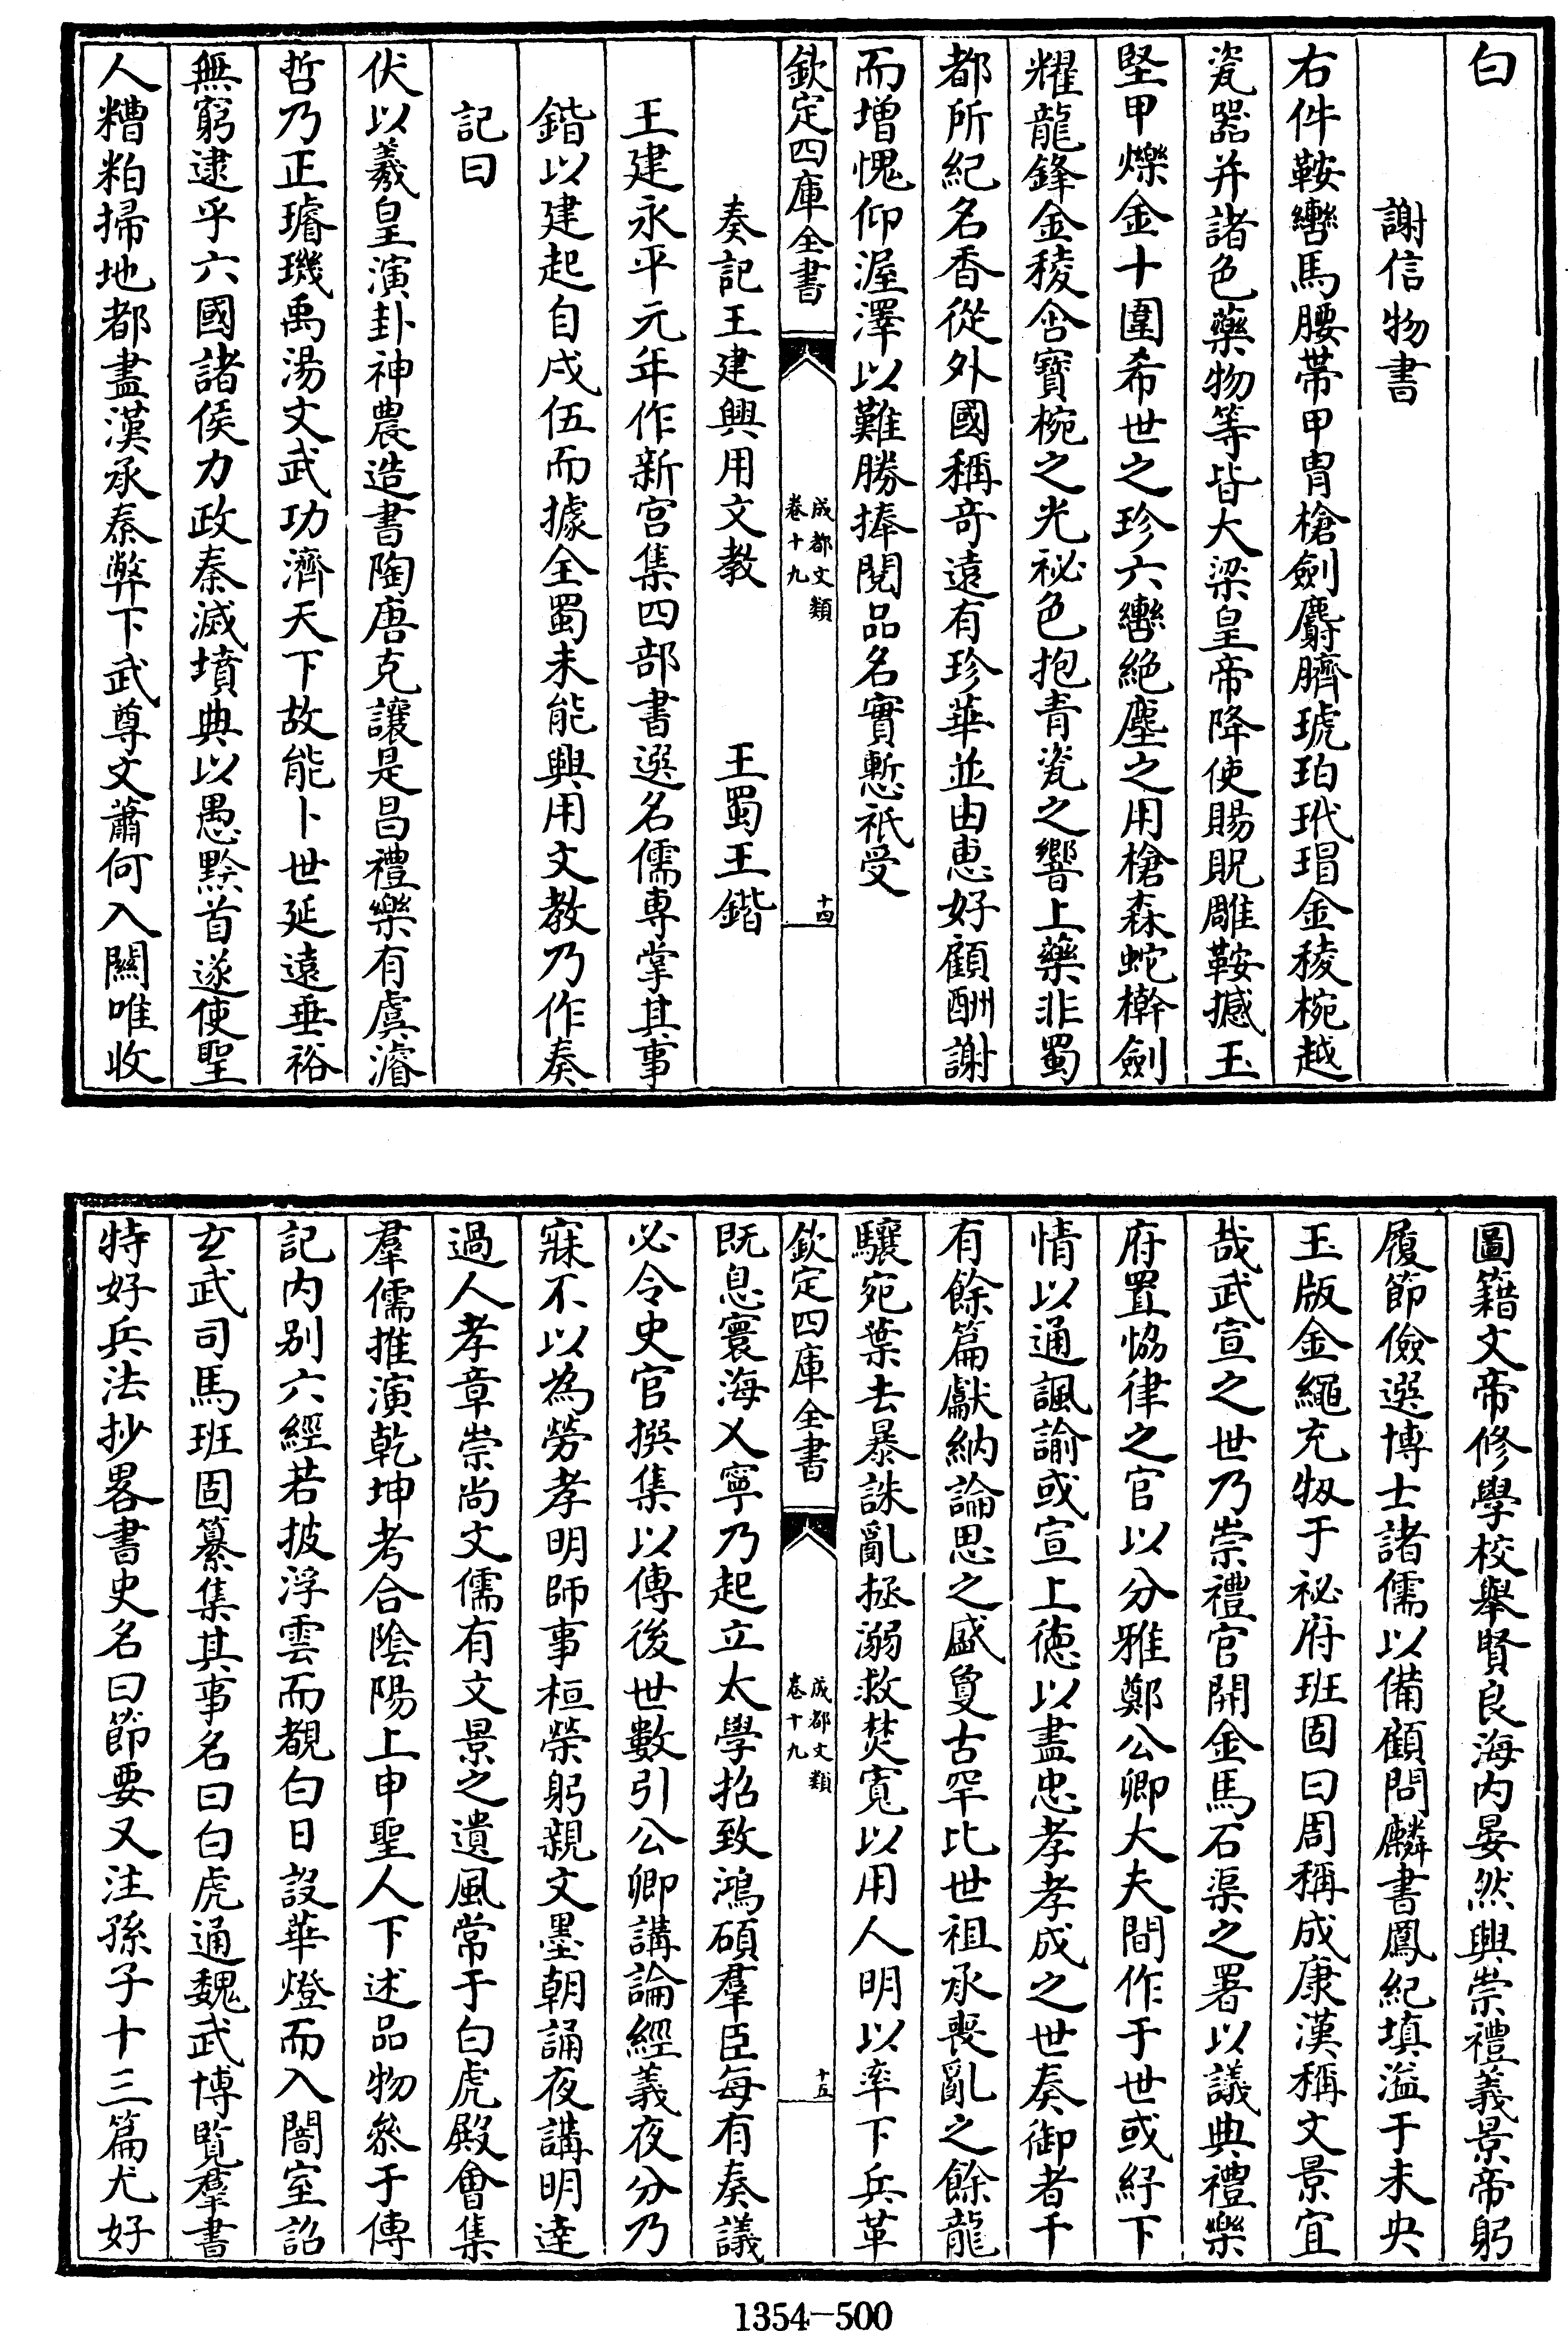 白
謝信物書
右件鞍轡馬腰帶甲冑槍劍麝臍琥珀玳瑁金稜椀越
瓷器并諸色藥物等皆大梁皇帝降使賜貺雕鞍撼玉
堅甲爍金十圍希世之珍六轡絶塵之用槍森蛇榦劍
耀龍鋒金稜含寶椀之光祕色抱青瓷之響上藥非蜀
都所紀名香從外國稱奇遠有珍華並由惠好顧酬謝
而增愧仰渥澤以難勝捧閲品名實慙祇受
欽定四庫全書
成都文類
卷十九
十四
奏記王建興用文教 王蜀王鍇
王建永平元年作新宫集四部書選名儒專掌其事
鍇以建起自戌伍而據全蜀未能興用文教乃作奏
記曰
伏以羲皇演卦神農造書陶唐克讓是昌禮樂有虞濬
哲乃正璿璣禹湯文武功濟天下故能卜世延遠垂裕
無窮逮乎六國諸侯力政秦滅墳典以愚黔首遂使聖
人糟粕掃地都盡漢承秦弊下武尊文蕭何入關唯收
圖籍文帝修學校舉賢良海内晏然興崇禮義景帝躬
履節儉選博士諸儒以備顧問麟書鳳紀填溢于未央
玉版金繩充牣于祕府班固曰周稱成康漢稱文景宜
哉武宣之世乃崇禮官開金馬石渠之署以議典禮樂
府置恊律之官以分雅鄭公卿大夫間作于世或紓下
情以通諷諭或宣上徳以盡忠孝孝成之世奏御者千
有餘篇獻納論思之盛夐古罕比世祖承喪亂之餘龍
驤宛葉去暴誅亂拯溺救焚寛以用人明以率下兵革
欽定四庫全書
成都文類
卷十九
十五
既息寰海乂寧乃起立太學招致鴻碩羣臣每有奏議
必令史官撰集以傳後世數引公卿講論經義夜分乃
寐不以為勞孝明師事桓榮躬親文墨朝誦夜講明達
過人孝章崇尚文儒有文景之遺風常于白虎殿會集
羣儒推演乾坤考合陰陽上申聖人下述品物叅于傳
記内别六經若披浮雲而覩白日設華燈而入闇室詔
玄武司馬班固纂集其事名曰白虎通魏武博覽羣書
特好兵法抄畧書史名曰節要又注孫子十三篇尤好
1354-500